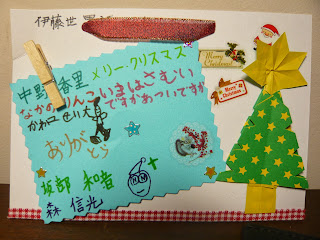 伊藤世
中野香里 メリークリスマス
なかのりんこいまはさむい
ですかあついですか
ありがとう
坂部 和音
森 信光
Merry Christmas
Merry Christmas